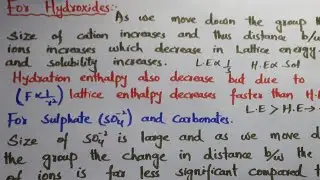 For Hydroxides:-
As we move down the group th
Size of cation increases and thus distance b/w
ions increases which decrease in Lattice energy
and solubility increases. L.E ∝ 1/r H.E ∝ Sol
Hydration enthalpy also decrease but due to
(F ∝ 1/r²) lattice enthalpy decreases faster than H.
L.E > H.E →
For Sulphate (SO₄⁻²) and Carbonates.
Size of SO₄⁻² is large and as we move d
the group the change in distance b/w the
of ions is far less significant compared t